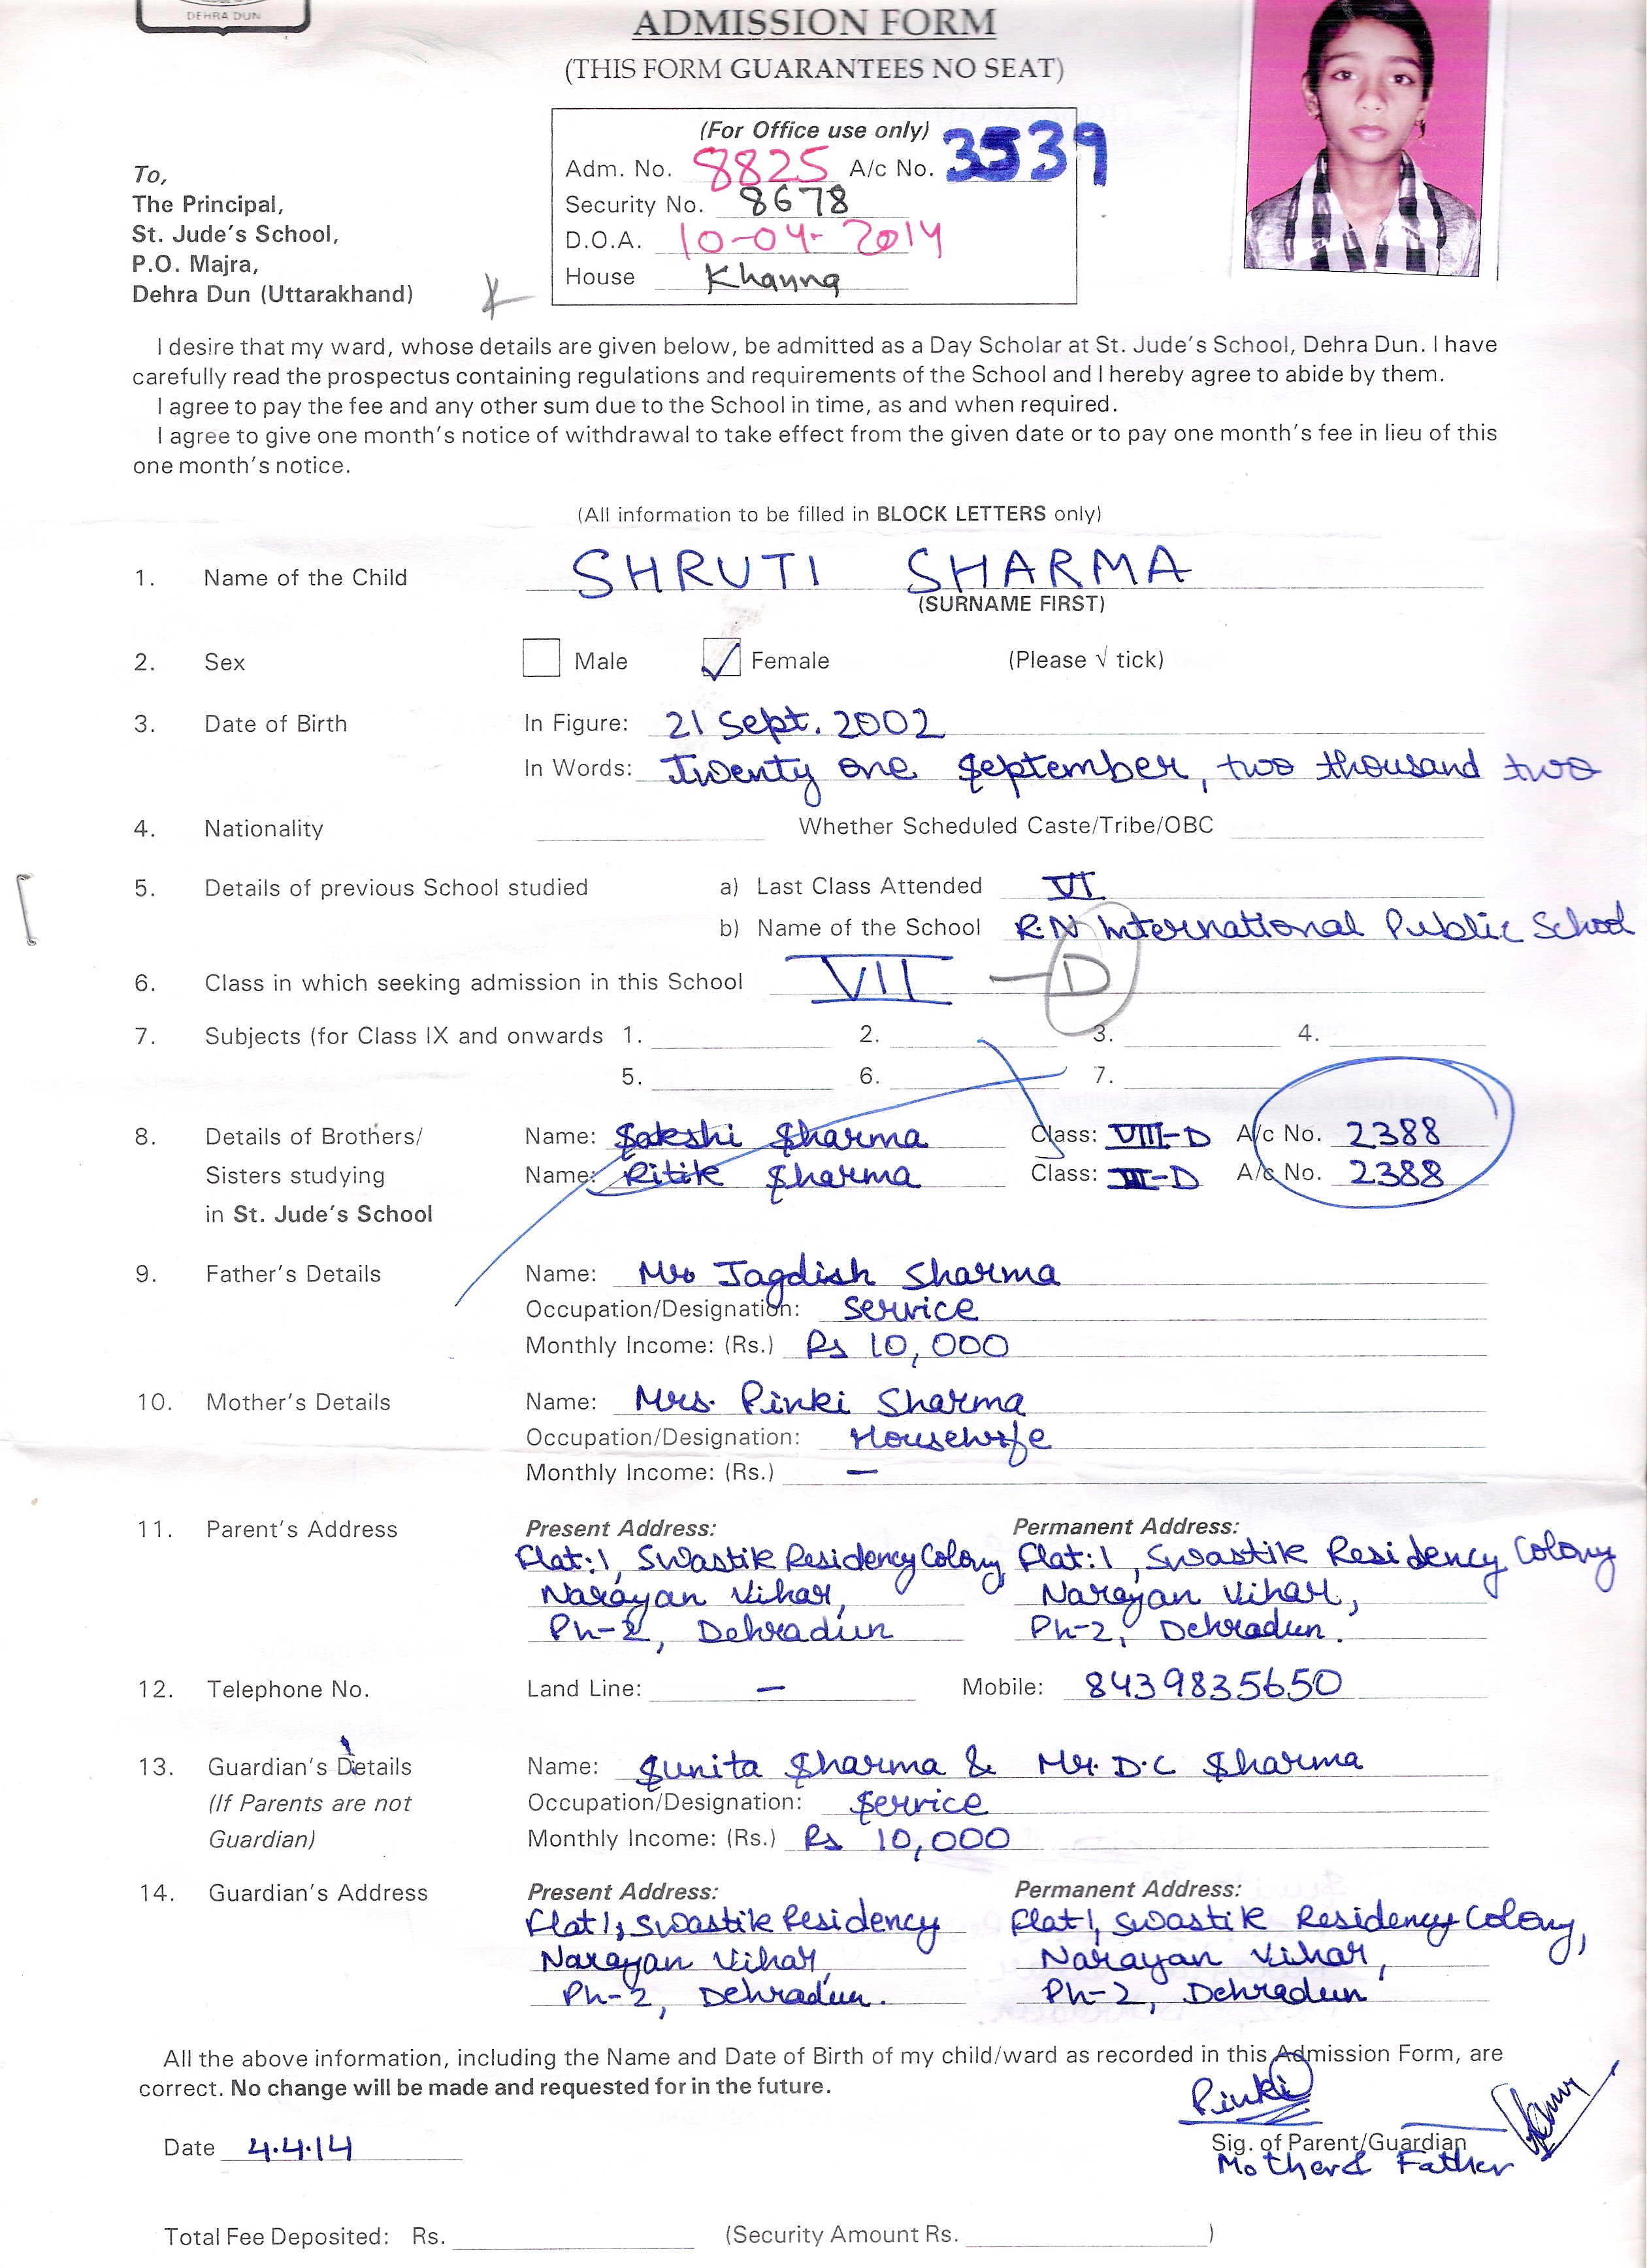 DEHRA DUN
ADMISSION FORM
(THIS FORM GUARANTEES NO SEAT)
(For Office use only)
Adm. No. 8825 A/c No. 3539
Security No. 8678
D.O.A. 10-04-2014
House Khanna
To,
The Principal,
St. Jude's School,
P.O. Majra,
Dehra Dun (Uttarakhand)
I desire that my ward, whose details are given below, be admitted as a Day Scholar at St. Jude's School, Dehra Dun. I have
carefully read the prospectus containing regulations and requirements of the School and I hereby agree to abide by them.
I agree to pay the fee and any other sum due to the School in time, as and when required.
I agree to give one month's notice of withdrawal to take effect from the given date or to pay one month's fee in lieu of this
one month's notice.
(All information to be filled in BLOCK LETTERS only)
1. Name of the Child SHRUTI SHARMA
(SURNAME FIRST)
2. Sex Male ✓ Female (Please √ tick)
3. Date of Birth In Figure: 21 Sept. 2002
In Words: Twenty one September, two thousand two
4. Nationality Whether Scheduled Caste/Tribe/OBC
5. Details of previous School studied a) Last Class Attended VI
b) Name of the School R.N International Public School
6. Class in which seeking admission in this School VII - D
7. Subjects (for Class IX and onwards 1. 2. 3. 4.
5. 6. 7.
8. Details of Brothers/ Name: Sakshi Sharma Class: VIII-D A/c No. 2388
Sisters studying Name: Ritik Sharma Class: III-D A/c No. 2388
in St. Jude's School
9. Father's Details Name: Mr Jagdish Sharma
Occupation/Designation: Service
Monthly Income: (Rs.) Rs 10,000
10. Mother's Details Name: Mrs. Pinki Sharma
Occupation/Designation: Housewife
Monthly Income: (Rs.) -
11. Parent's Address Present Address: Permanent Address:
Flat:1, Swastik Residency Colony Flat:1, Swastik Residency Colony
Narayan Vihar, Narayan Vihar,
Ph-2, Dehradun Ph-2, Dehradun.
12. Telephone No. Land Line: - Mobile: 8439835650
13. Guardian's Details Name: Sunita Sharma & Mr. D.C Sharma
(If Parents are not Occupation/Designation: Service
Guardian) Monthly Income: (Rs.) Rs 10,000
14. Guardian's Address Present Address: Permanent Address:
Flat 1, Swastik Residency Flat 1, Swastik Residency Colony,
Narayan Vihar, Narayan Vihar,
Ph-2, Dehradun. Ph-2, Dehradun
All the above information, including the Name and Date of Birth of my child/ward as recorded in this Admission Form, are
correct. No change will be made and requested for in the future.
Pinki
Date 4.4.14 Sig. of Parent/Guardian
Mother & Father
Total Fee Deposited: Rs. (Security Amount Rs. )